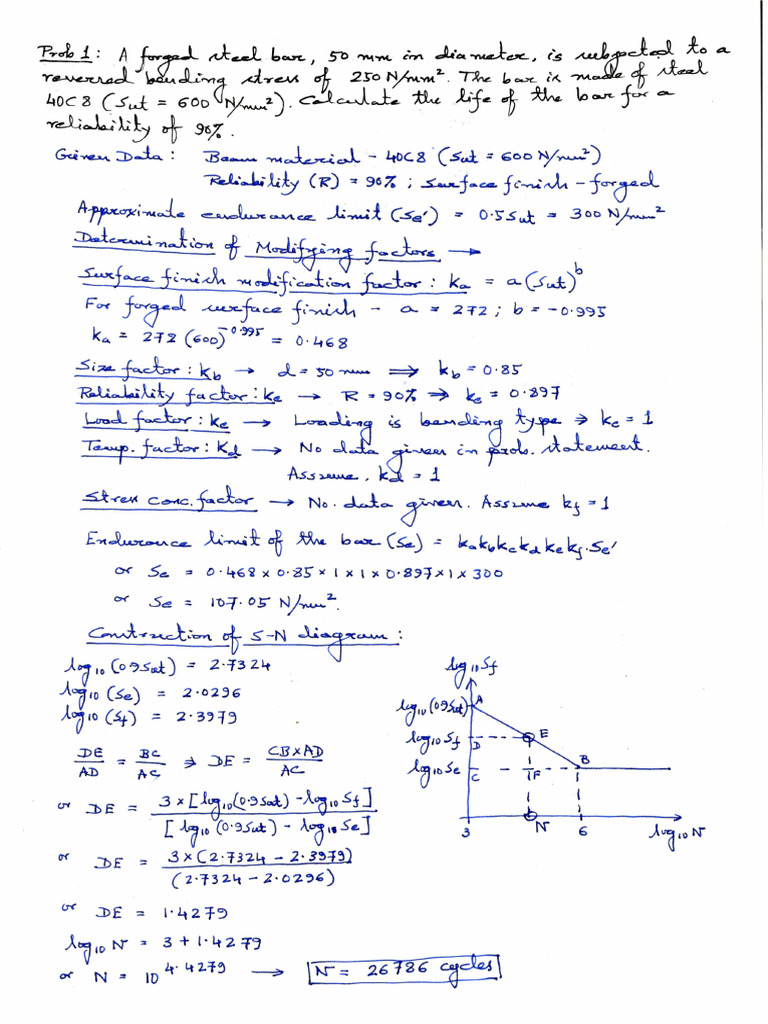 Prob 1: A forged steel bar, 50 mm in diameter, is subjected to a
reversed bending stress of 250 N/mm². The bar is made of steel
40C8 (Sut = 600 N/mm²). Calculate the life of the bar for a
reliability of 90%.
Given Data: Beam material - 40C8 (Sut = 600 N/mm²)
Reliability (R) = 90%; Surface finish - forged
Approximate endurance limit (Se') = 0.5Sut = 300 N/mm²
Determination of Modifying factors →
Surface finish modification factor: ka = a(Sut)^b
For forged surface finish - a = 272; b = -0.995
ka = 272 (600)^-0.995 = 0.468
Size factor: kb → d = 50 mm ⇒ kb = 0.85
Reliability factor: ke → R = 90% ⇒ ke = 0.897
Load factor: kc → Loading is bending type ⇒ kc = 1
Temp. factor: Kd → No data given in prob. statement.
Assume, kd = 1
Stress conc. factor → No. data given. Assume kf = 1
Endurance limit of the bar (Se) = ka kb kc kd ke kf. Se'
or Se = 0.468 × 0.85 × 1 × 1 × 0.897 × 1 × 300
or Se = 107.05 N/mm².
Construction of S-N diagram:
log10 (0.9Sut) = 2.7324
log10 (Se) = 2.0296
log10 (Sf) = 2.3979
DE/AD = BC/AC ⇒ DE = CB×AD/AC
or DE = 3 × [log10(0.9Sut) - log10 Sf] / [log10(0.9Sut) - log10 Se]
or DE = 3×(2.7324 - 2.3979) / (2.7324 - 2.0296)
or DE = 1.4279
log10 N = 3 + 1.4279
or N = 10^4.4279 → N = 26786 cycles
log10 Sf
log10 (0.9Sut) A
log10 Sf D E
log10 Se C F B
3 N 6 log10 N